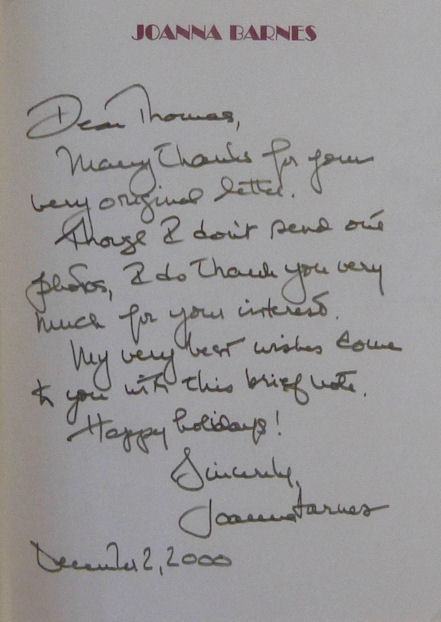 JOANNA BARNES
Dear Thomas,
Many thanks for your
very original letter.
Though I don't send out
photos, I do thank you very
much for your interest.
My very best wishes come
to you with this brief note.
Happy holidays!
Sincerely,
Joanna Barnes
December 2, 2000